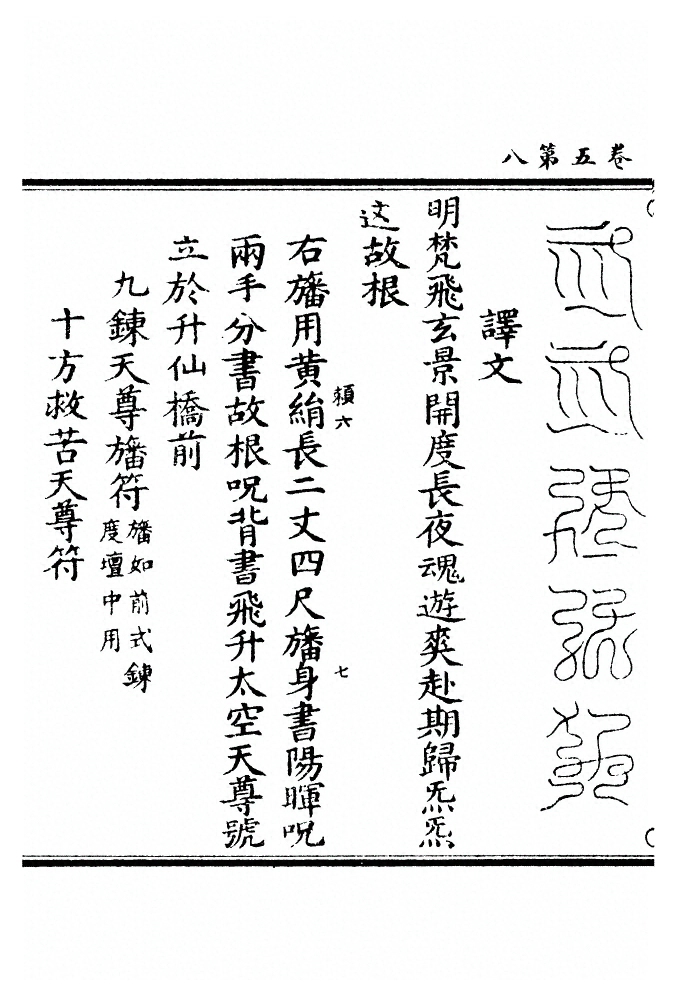 卷五第八
譯文
明梵飛玄景開度長夜魂遊爽赴期歸炁炁
这故根
右旛用黄絹長二丈四尺旛身書陽暉呪
頼六
七
兩手分書故根呪背書飛升太空天尊號
立於升仙橋前
九鍊天尊旛符旛如前式鍊
度壇中用
十方救苦天尊符